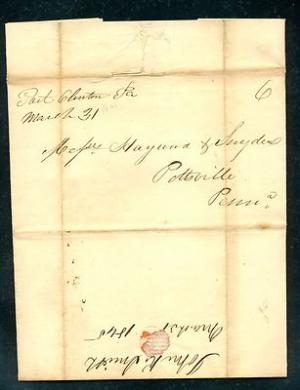 Port Clinton Pa
March 31
6
Messrs Haywood & Snyder
Pottsville
Penna
John R. Smith
March 31 1845